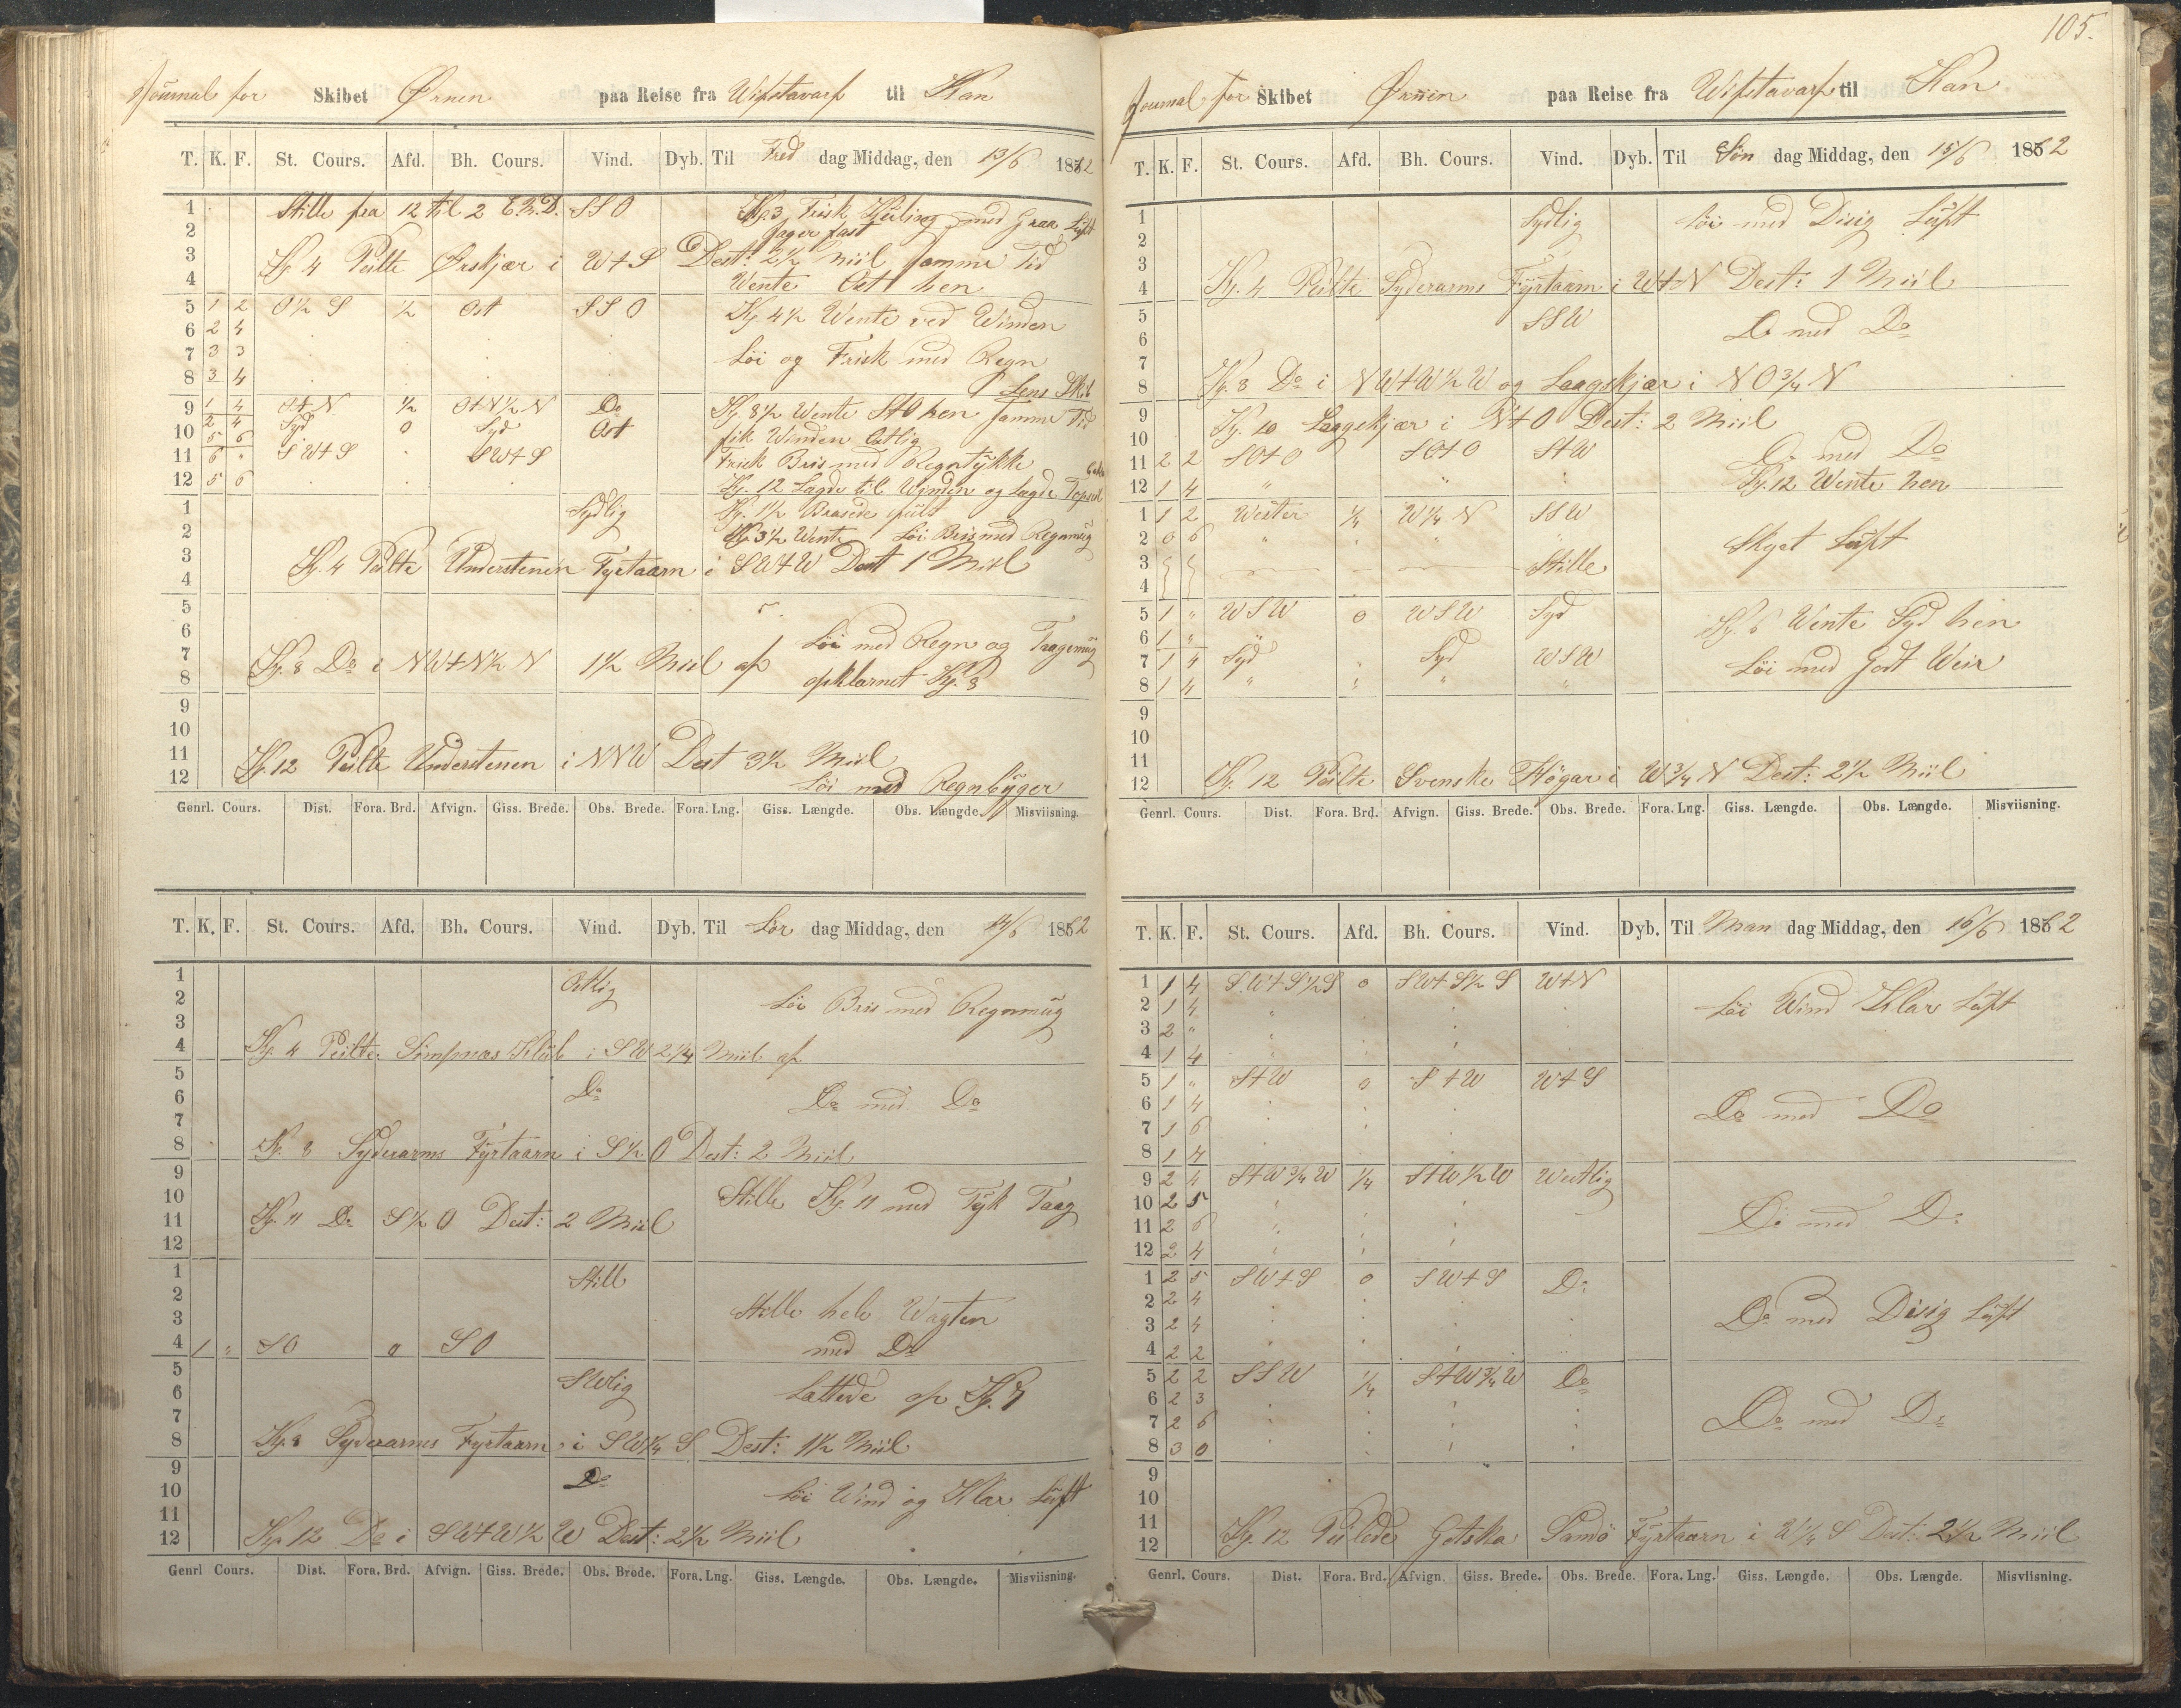 Journal for Skibet Ørnen paa Reise fra Wifstavarf til Kan
T. K. F. St. Cours. Afd. Bh. Cours. Vind. Dyb. Til Fred dag Middag, den 13/6 1862
1 Stille fra 12 til 2 E.M.D. SSO Kl. 3 Frisk Kuling med Graa Luft
2 fast
3 Kl. 4 Peilte Ørskjær i W+S Dest: 2½ Miil samme Tid
4 Wente Ost hen
5 1 2 O½ S ½ Ost SSO Kl. 4½ Wente ved Winden
6 2 4
7 3 3 Løi og Frisk med Regn
8 3 4 Lens Skib
9 1 4 O+N ½ O+N½N Do Kl. 8½ Wente St O hen samme Tid
2 4 Syd 0 Syd Ost fik Winden Ostlig
10 5 6
11 6 " SW+S SW+S Frisk Bris med Regntykke
12 5 6 Kl. 12 Lagde til Winden og Lagde Topseil
1 Sydlig Kl. 1½ Brasede fuldt
2 Kl. 3½ Wente Løi Bris med Regnmug
3 Kl. 4 Peilte Understenen Fyrtaarn i SW+W Dest 1 Miil
4
5
6 Løi med Regn og Taagemug
7 Kl. 8 Do i NW+N½ N 1½ Miil af
8 opklarnet Kl. 8
9
10
11 Kl. 12 Peilte Understenen i NNW Dest 3½ Miil
12 Løi med Regnbyger
Genrl. Cours. Dist. Fora. Brd. Afvign. Giss. Brede. Obs. Brede. Fora. Lng. Giss. Længde. Obs. Længde. Misviisning.
T. K. F. St. Cours. Afd. Bh. Cours. Vind. Dyb. Til Lør dag Middag, den 14/6 1862
1 Ostlig
2 Løi Bris med Regnmug
3
4 Kl. 4 Peilte Simpnæs Klub i SW 2¼ Miil af
5 Do
6 Do med Do
7
8 Kl. 8 Syderarms Fyrtaarn i S½ O Dest: 2 Miil
9
10 Stille Kl. 11 med Tyk Taag
11 Kl. 11 Do S½ O Dest: 2 Miil
12
1 Still
2 Stille hele Wagten
3
4 1 " SO 0 SO med Do
5 SWlig
6 Lettede op Kl. 7
7
8 Kl. 8 Syderarms Fyrtaarn i SW¼ S Dest: 1½ Miil
9 Do
10 Løi Wind og Klar Luft
11
12 Kl. 12 Do i SW+W½ W Dest: 2½ Miil
Genrl Cours. Dist. Fora. Brd. Afvign. Giss. Brede. Obs. Brede. Fora. Lng. Giss. Længde. Obs. Længde. Misviisning.
105.
Journal for Skibet Ørnen paa Reise fra Wifstavarf til Kan
T. K. F. St. Cours. Afd. Bh. Cours. Vind. Dyb. Til Søn dag Middag, den 15/6 1862
1 Sydlig Løi med Disig Luft
2
3
4 Kl. 4 Peilte Syderarms Fyrtaarn i W+N Dest: 1 Miil
5 SSW
6 Do med Do
7
8 Kl. 8 Do i NW+W½ W og Laagskjær i NO¾ N
9 Kl. 10 Laagskjær i N+O Dest: 2 Miil
10
11 2 2 SO+O SO+O S+W Do med Do
12 1 4 " " Kl. 12 Wente hen
1 1 2 Wester ¼ W¼ N SSW
2 0 6 " " " Skyet Luft
3 Stille
4
5 1 " WSW 0 WSW Syd Kl. 6 Wente Syd hen
6 1 "
7 1 4 Syd " Syd WSW Løi med Godt Weir
8 1 4 " " " "
9
10
11
12 Kl. 12 Peilte Svenske Högar i W¾ N Dest: 2½ Miil
Genrl. Cours. Dist. Fora. Brd. Afvign. Giss. Brede. Obs. Brede. Fora. Lng. Giss. Længde. Obs. Længde. Misviisning.
T. K. F. St. Cours. Afd. Bh. Cours. Vind. Dyb. Til Man dag Middag, den 16/6 1862
1 1 4 SW+S½S 0 SW+S½ S W+N
2 1 4 Løi Wind Klar Luft
3 2 "
4 1 4
5 1 " S+W 0 S+W W+S
6 1 4 Do med Do
7 1 6
8 1 4
9 2 4 S+W¾ W ¼ S+W½ W Westlig
10 2 5
11 2 6 Do med Do
12 2 4
1 2 5 SW+S 0 SW+S Do
2 2 4 Do med Disig Luft
3 2 4
4 2 2
5 2 2 SSW ¼ S+W¾ W Do
6 2 3
7 2 6 Do med Do
8 3 0
9
10
11 Kl. 12 Peilede Gotska Sandö Fyrtaarn i W¼ S Dest: 2½ Miil
12
Genrl. Cours. Dist. Fora. Brd. Afvign. Giss. Brede. Obs. Brede. Fora. Lng. Giss. Længde. Obs. Længde. Misviisning.